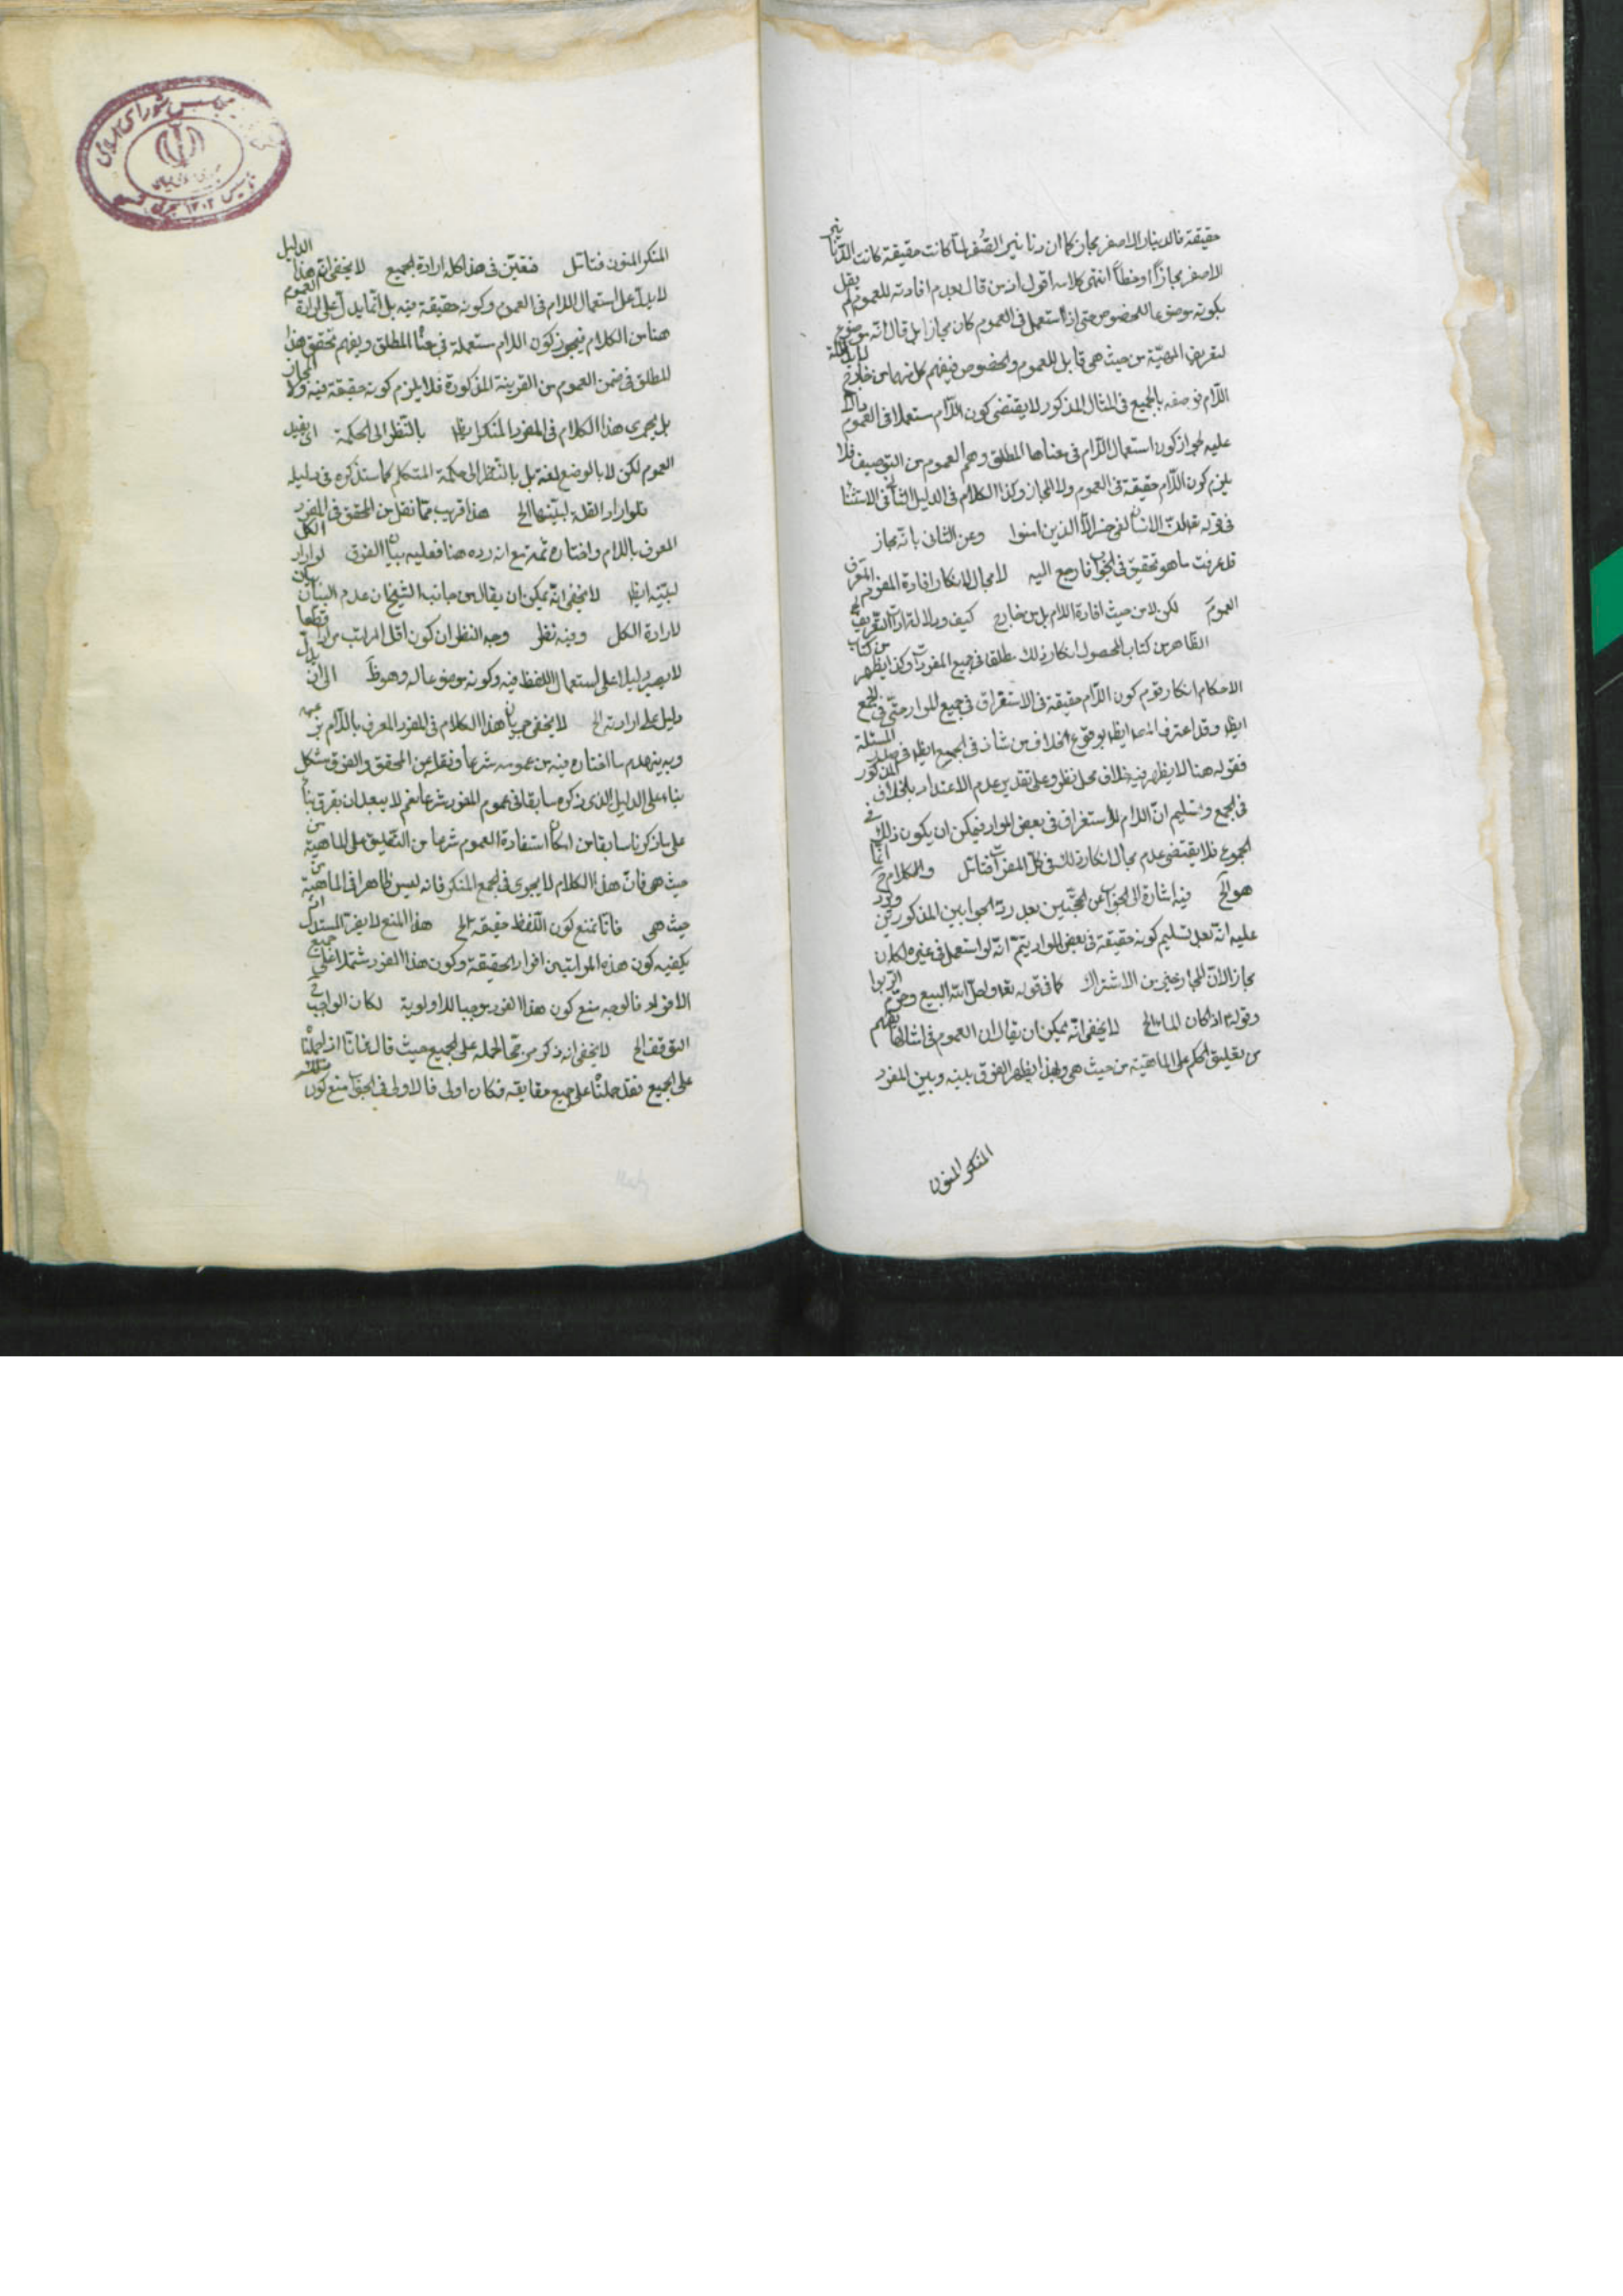 حقيقة فالدينار الاصفر مجاز كما ان دنانير الصفر لما كانت حقيقة كانت الدنانير
الاصفر مجازاً او خطأ انتهى كلامه اقول ان من قال بعدم افادته للعموم لم يقل
بكونه موضوعا للخصوص حتى اذا استعمل في العموم كان مجازا بل قال انه موضوع
لتعريف المهيّة من حيث هي قابل للعموم والخصوص فيفهم كل منهما من خارج
اللّام فوصفه بالجميع في المثال المذكور لا يقتضي كون اللّام مستعملا في العموم
عليه لجواز كون استعمال اللّام في معناها المطلق وفهم العموم من التوصيف فلا
يلزم كون اللّام حقيقة في العموم ولا المجاز وكذا الكلام في الدليل الثاني في الاستثنا
في قوله تعالى انّ الانسان لفي خسر الّا الذين امنوا وعن الثاني بانه مجاز
قد عرفت ما هو تحقيق في الجواب فارجع اليه لا مجال لانكار افادة المفرد المعرف
العموم لكن لا من حيث افادة اللام بل من خارج كيف ودلالة اداة التعريف الخ
الظاهر من كتاب المحصول انكار ذلك مطلقا في جميع المفردات وكذا يظهر من كتاب
الاحكام انكار قوم كون اللّام حقيقة في الاستغراق في جميع الموارد حتى في الجمع
ايظ وقد اعترف المص ايظ بوقوع الخلاف من شاذ في الجمع ايظ في صدر المسئلة
فقوله هنا لا يظهر فيه خلاف محل نظر وعلى تقدير عدم الاعتداد بالخلاف المذكور
في الجمع وتسليم انّ اللام للاستغراق في بعض الموارد فيمكن ان يكون ذلك في
الجموع فلا يقتضي عدم مجال انكار ذلك في كلّ المفردات فتامل والكلام ح انما
هو الخ فيه اشارة الى الجواب عن الحجّتين بعد ردّ الجوابين المذكورين ويرد
عليه انّه بعد تسليم كونه حقيقة في بعض الموارد يتمّ انّه لو استعمل في غيره لكان
مجازا لانّ المجاز خير من الاشتراك كما في قوله تعا واحلّ الله البيع وحرّم الرّبوا
وقوله اذا كان الماء الخ لا يخفى انّه يمكن ان يقال ان العموم في امثالها يفهم
من تعليق الحكم على الماهية من حيث هي وبهذا يظهر الفرق بينه وبين المفرد
المنكر المنون
المنكر المنون فتامّل فتعيّن في هذا كله ارادة الجميع لا يخفى ان هذا الدليل
لا يدلّ على استعمال اللام في العموم وكونه حقيقة فيه بل انّما يدلّ على ارادة العموم
هنا من الكلام فيجوز كون اللام مستعملة في معناه المطلق ويفهم تحقق هذا
المطلق في ضمن العموم من القرينة المذكورة فلا يلزم كونه حقيقة فيه ولا المجاز
بل يجري هذا الكلام في المفرد المنكر ايظ بالنّظر الى الحكمة اي يفيد
العموم لكن لا بالوضع لغة بل بالنّظر الى حكمة المتكلم كما سنذكره في دليله
فلو اراد القلة لبيّنها الخ هذا قريب ممّا نقل من المحقق في المفرد
المعرف باللام واختاره ثمه مع انه رده هنا فعليه بيان الفرق لو اراد الكل
لبيّنه ايظ لا يخفى انّه يمكن ان يقال من جانب الشيخ ان عدم البيان بيان
لارادة الكل وفيه نظر وجه النظر ان كون اقل المراتب مرادا قطعا
لا يصير دليلا على استعمال اللفظ فيه وكونه موضوعا له وهو ظ الى ان
دليل على ارادته الخ لا يخفى جريان هذا الكلام في المفرد المعرف باللّام
وبه ينهدم ما اختاره فيه من عمومه شرعا ونقله عن المحقق والفرق مشكل
بناء على الدليل الذي ذكره سابقا في عموم المفرد شرعا نعم لا يبعد ان يفرق بناء
على ما ذكرنا سابقا من امكان استفادة العموم شرعا من التعليق على الماهية من
حيث هي فانّ هذا الكلام لا يجري في الجمع المنكر فانه ليس ظاهرا في الماهية من
حيث هي فانا نمنع كون اللّفظ حقيقة الخ هذا المنع لا يضر المستدل اذ
يكفيه كون هذه المراتب من افراد الحقيقة وكون هذا الفرد مشتملا على جميع
الافراد فالوجه منع كون هذا الفرد موجبا للاولوية لكان الواجب ح
التوقف الخ لا يخفى انه ذكر مرجّحا لحمله على الجميع حيث قال فانّا اذا حملناه
على الجميع فقد حملناه على جميع حقايقه فكان اولى فالاولى في الجواب منع كون